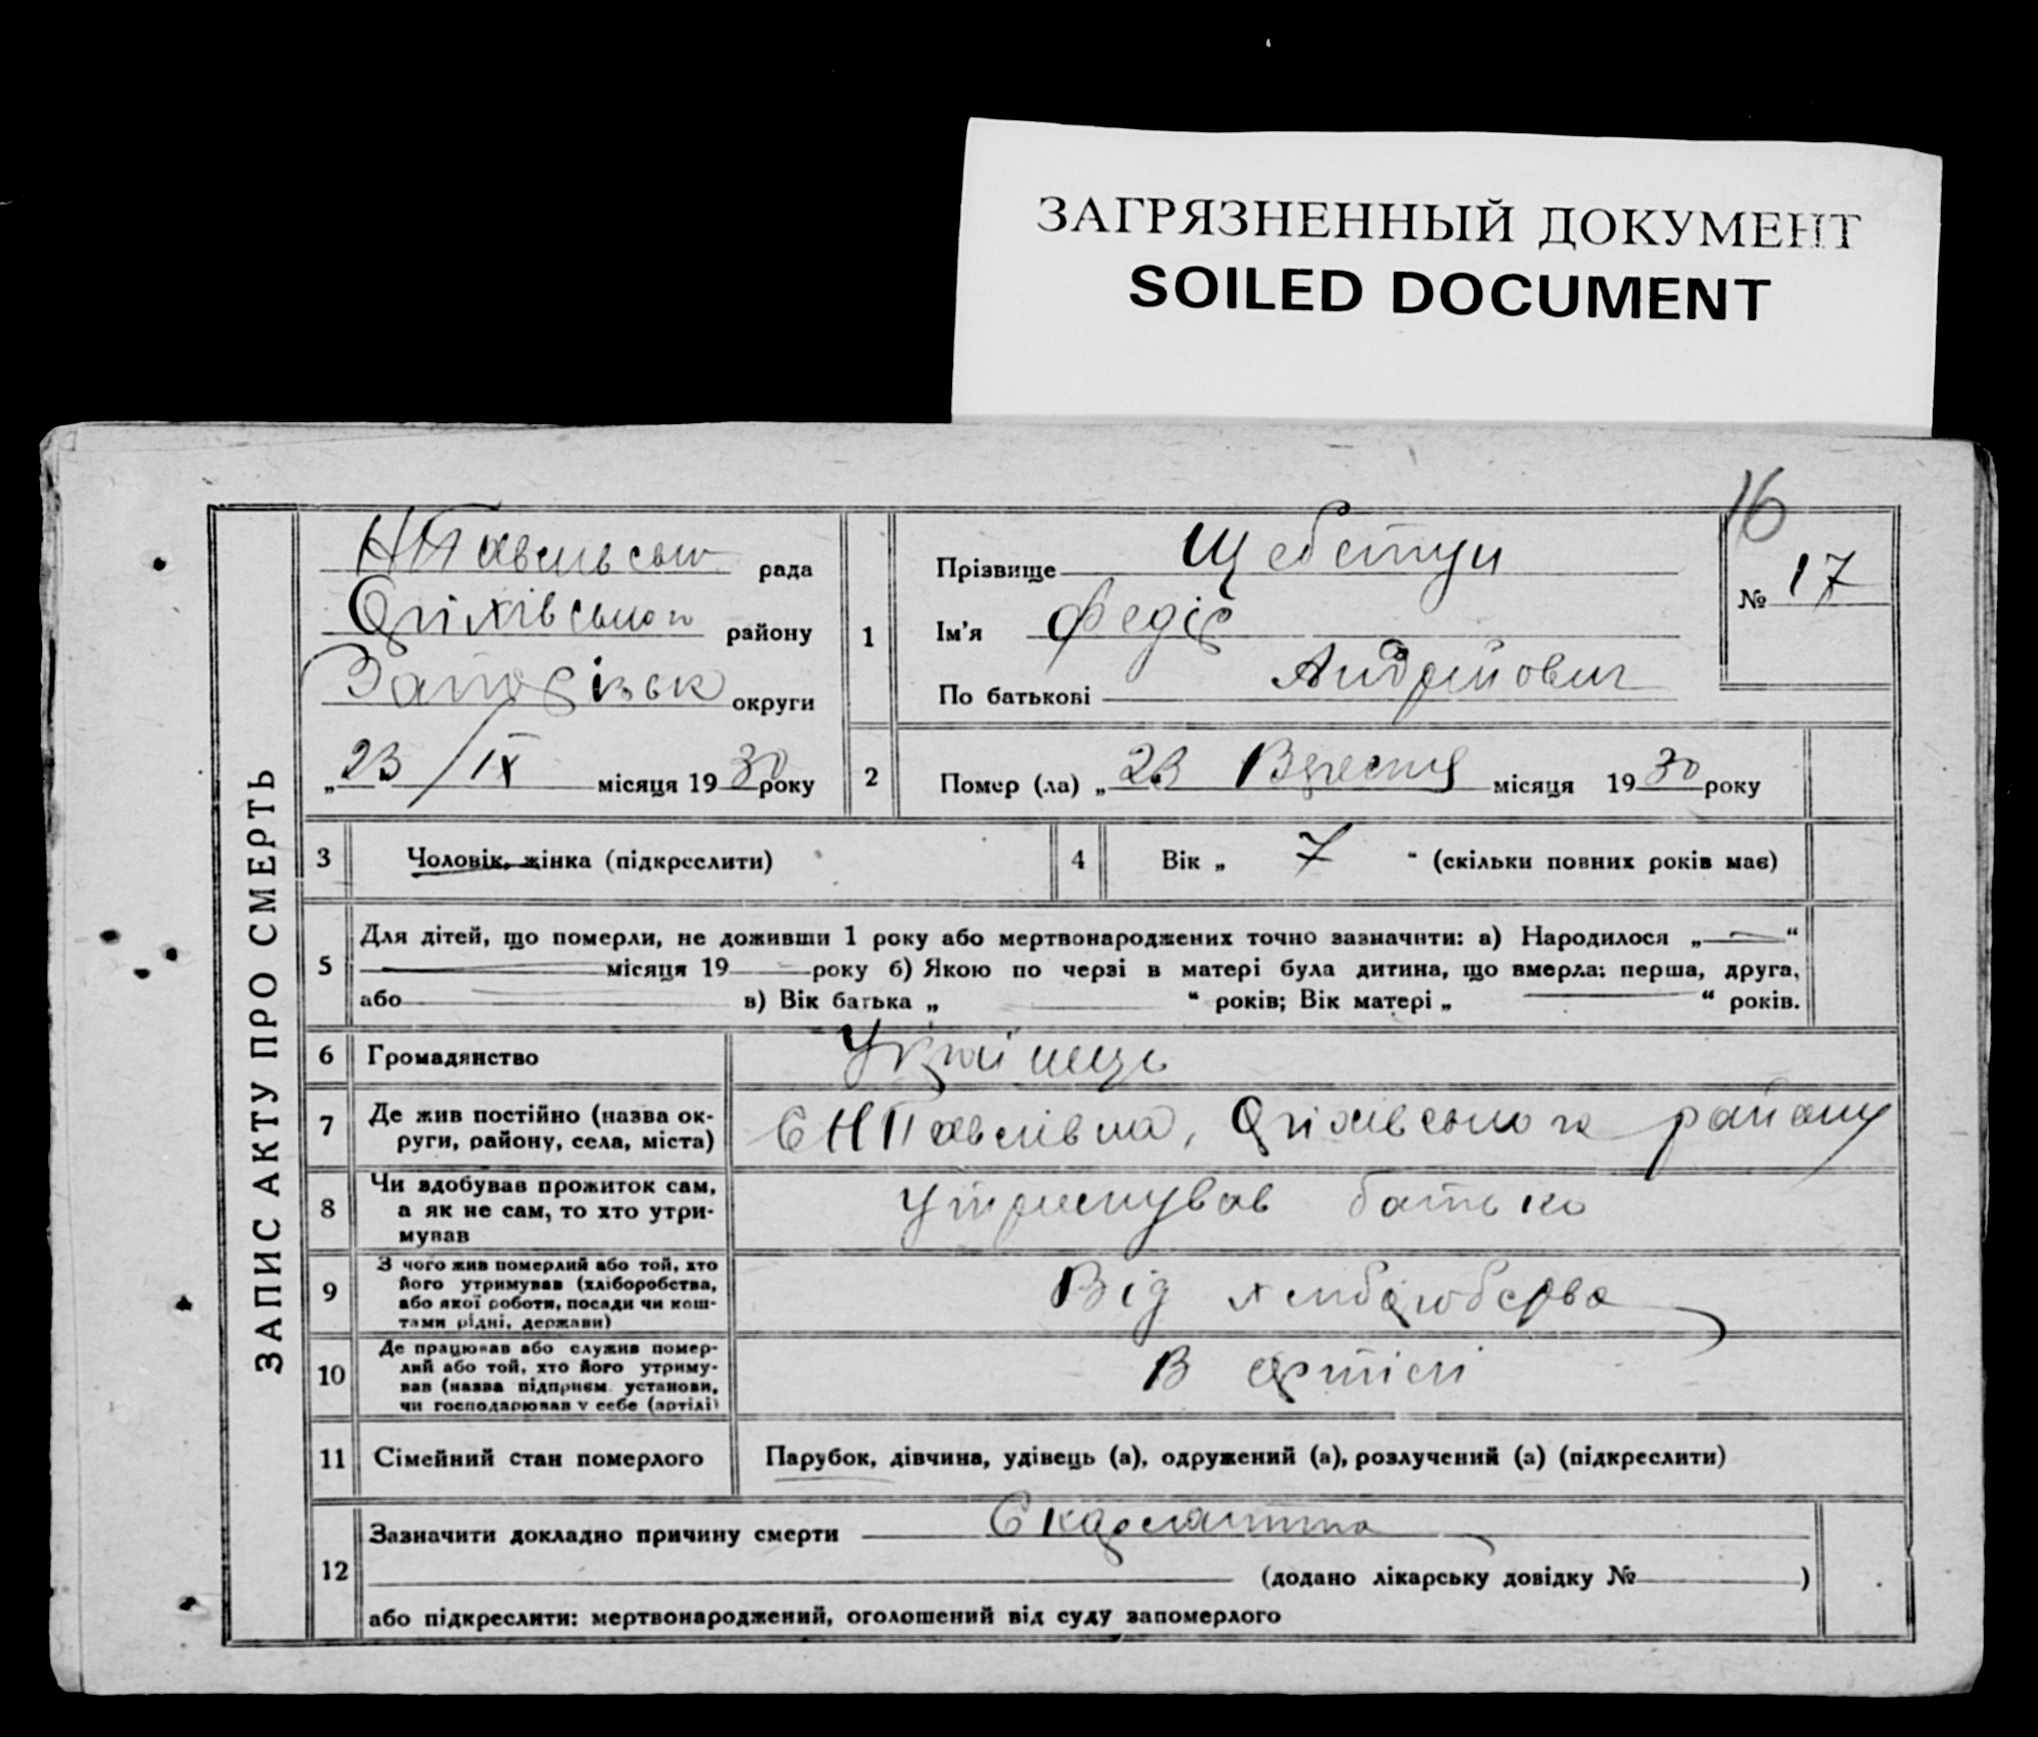 ЗАГРЯЗНЕННЫЙ ДОКУМЕНТ
SOILED DOCUMENT
16
ЗАПИС АКТУ ПРО СМЕРТЬ
рада
Оріхівського району
Запорізьк округи
„23 / IX місяця 1930 року
1
Прізвище Щебетун
Ім'я Федір
По батькові Андрійович
№ 17
2 Помер (ла) „23 Вересня місяця 1930 року
3 Чоловік, жінка (підкреслити)
4 Вік „ 7 “ (скільки повних років має)
5 Для дітей, що померли, не доживши 1 року або мертвонароджених точно зазначити: а) Народилося „ “
місяця 19 року б) Якою по черзі в матері була дитина, що вмерла: перша, друга,
або в) Вік батька „ “ років; Вік матері „ “ років.
6 Громадянство Українець
7 Де жив постійно (назва ок-
руги, району, села, міста)
С Н Павлівка, Оріхівського району
8 Чи здобував прожиток сам,
а як не сам, то хто утри-
мував
Утримував батько
9 З чого жив померлий або той, хто
його утримував (хліборобства,
або якої роботи, посади чи кош-
тами рідні, держави)
Від
10 Де працював або служив помер-
лий або той, хто його утриму-
вав (назва підприєм. установи,
чи господарював у себе (артілі)
В артілі
11 Сімейний стан померлого Парубок, дівчина, удівець (а), одружений (а), розлучений (а) (підкреслити)
12 Зазначити докладно причину смерти Скарлатина
(додано лікарську довідку № )
або підкреслити: мертвонароджений, оголошений від суду запомерлого